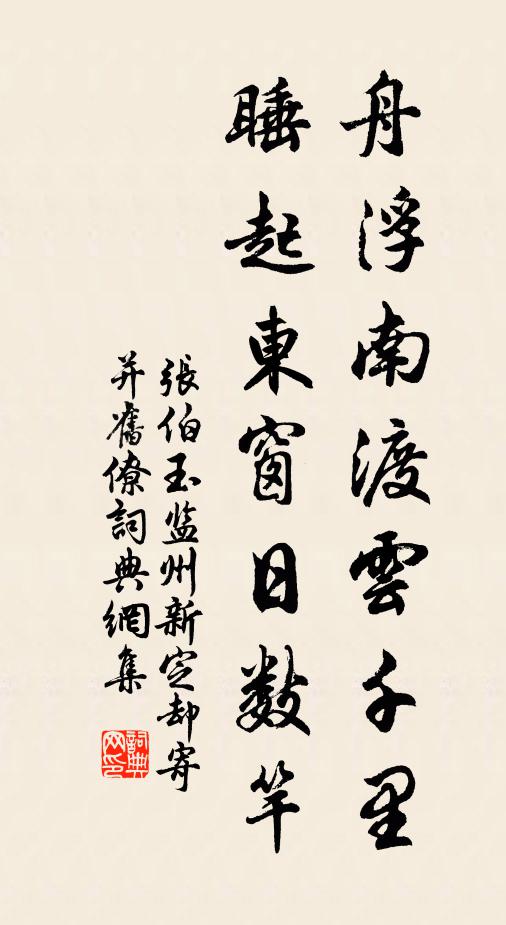 舟浮南渡雲千里
睡起東窗日數竿
張伯玉监州新定却寄
并舊僚詞典網集
詞典網印